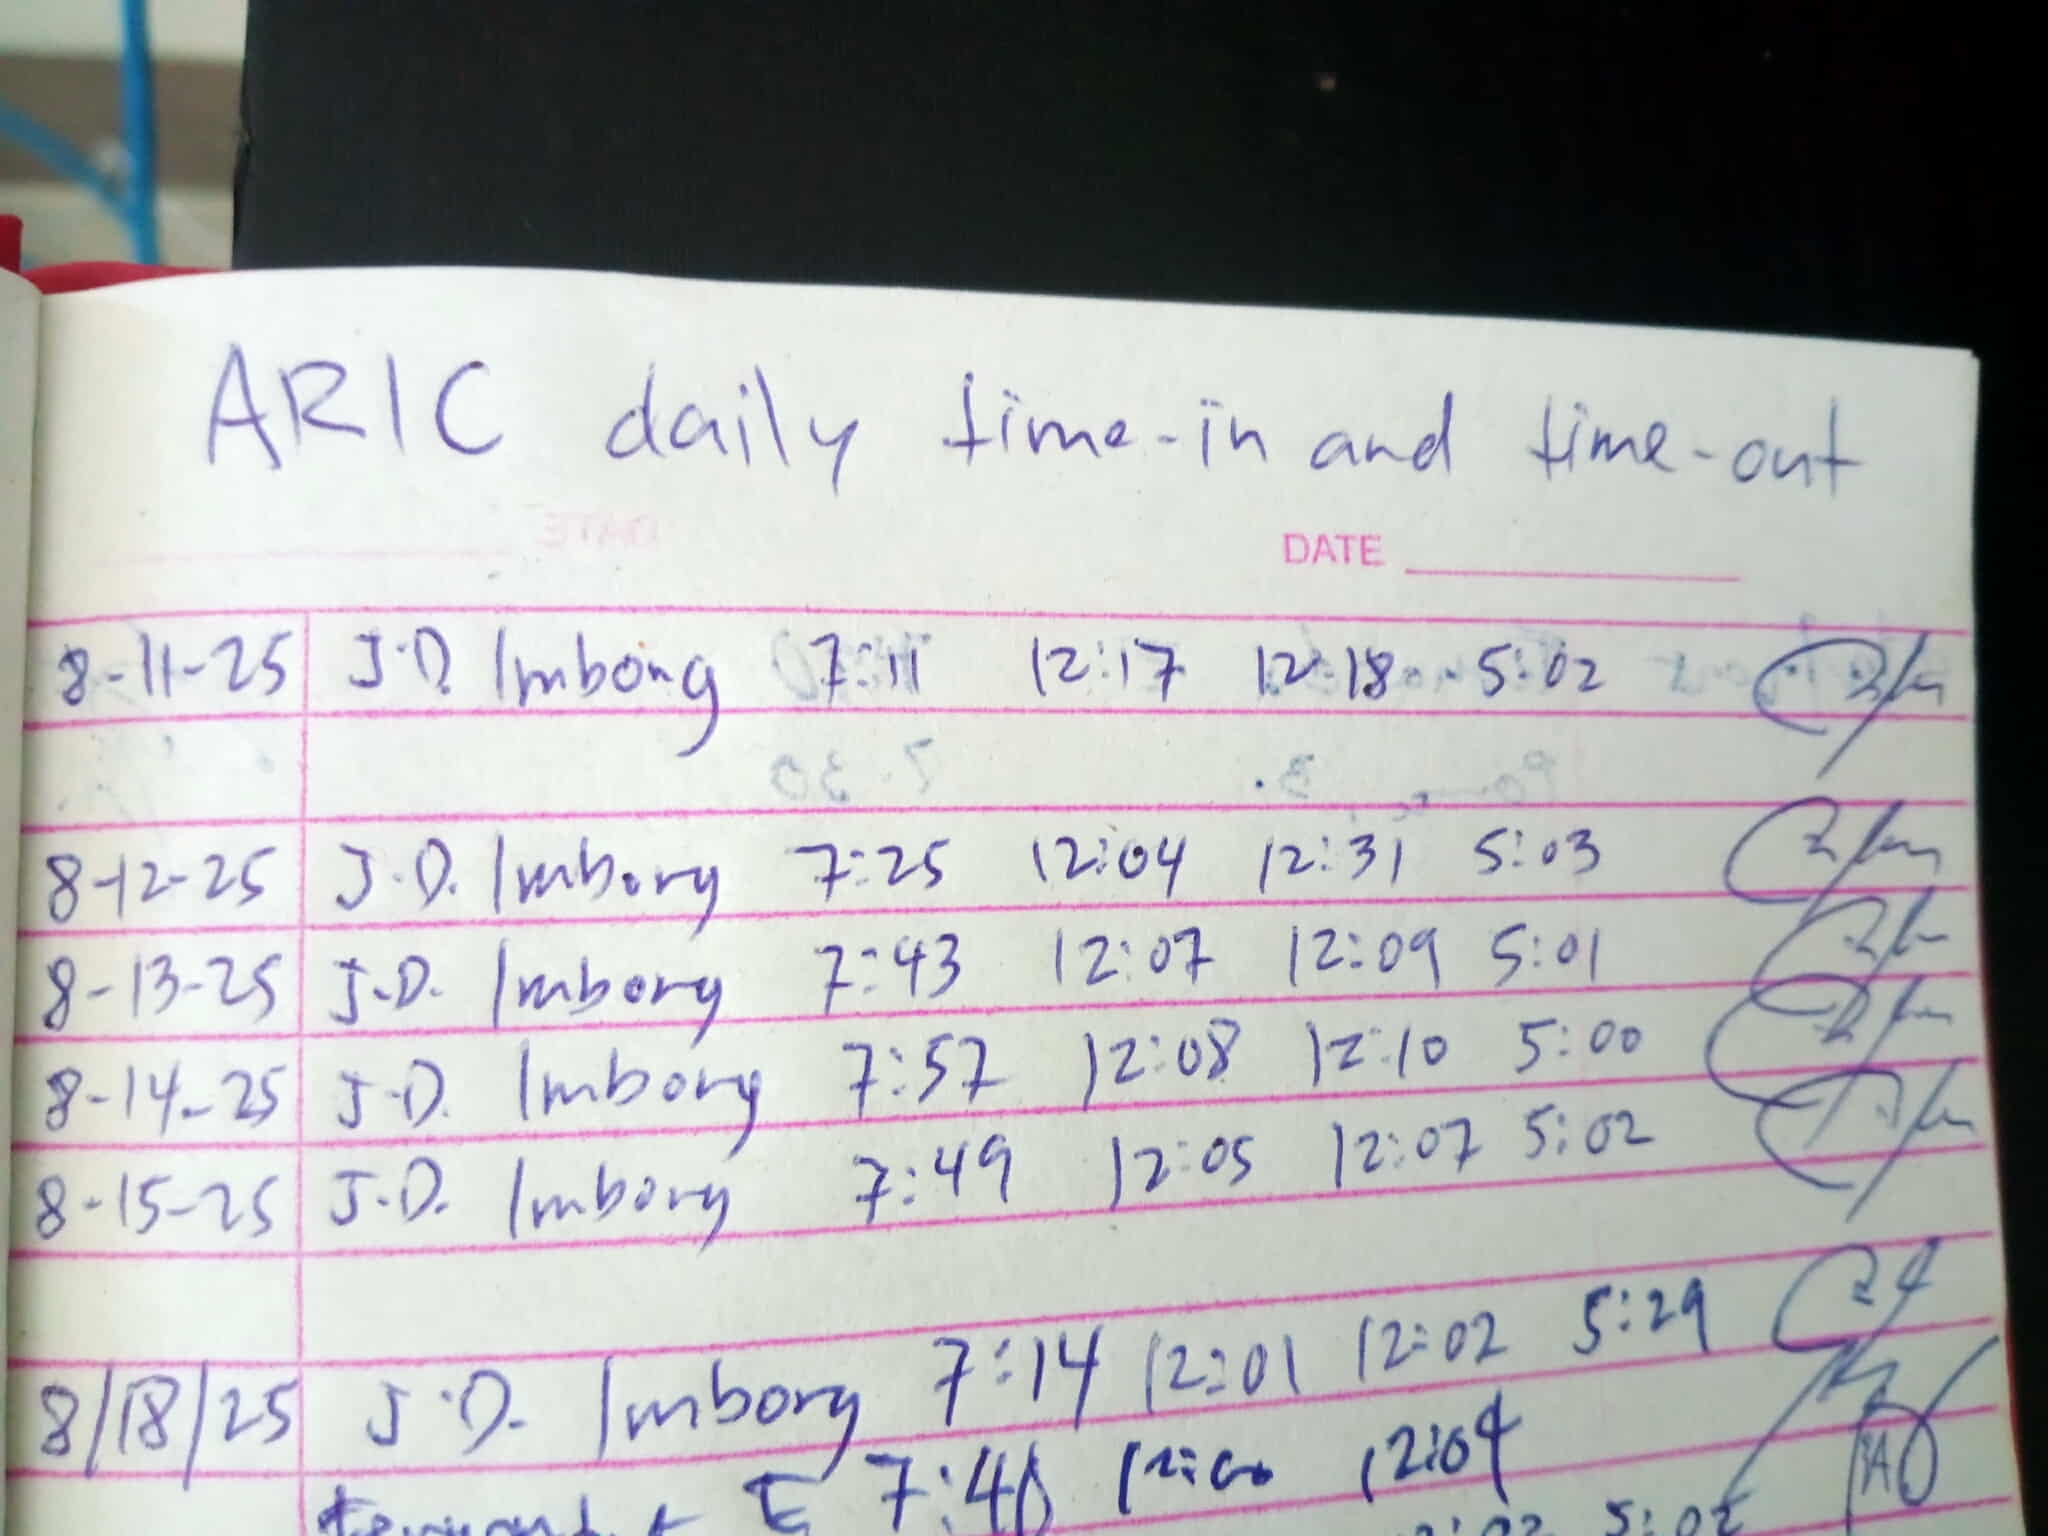 ARIC daily time-in and time-out
DATE
8-11-25 J.D. Imbong 7:11 12:17 12:18 5:02
8-12-25 J.D. Imbong 7:25 12:04 12:31 5:03
8-13-25 J.D. Imbong 7:43 12:07 12:09 5:01
8-14-25 J.D. Imbong 7:57 12:08 12:10 5:00
8-15-25 J.D. Imbong 7:49 12:05 12:07 5:02
8/18/25 J.D. Imbong 7:14 12:01 12:02 5:29
12:04
5:02